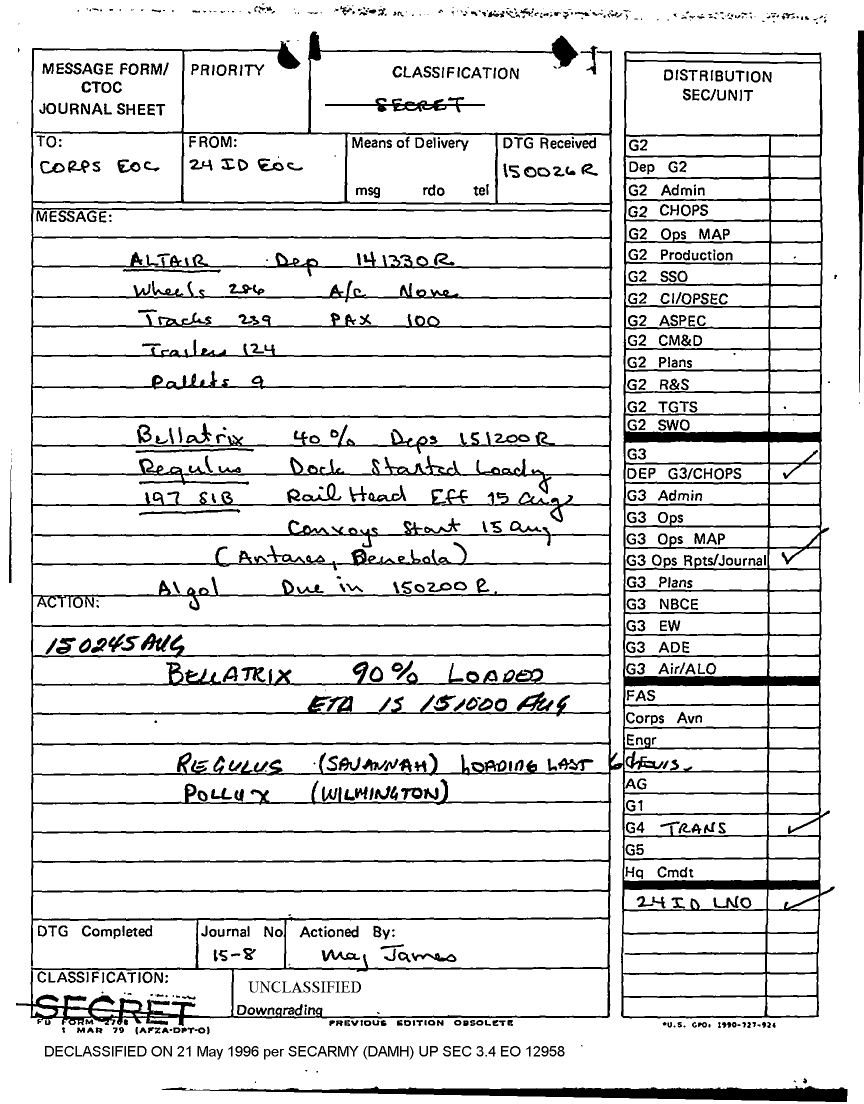 MESSAGE FORM/
CTOC
JOURNAL SHEET
PRIORITY
CLASSIFICATION
SECRET
TO:
CORPS EOC
FROM:
24 ID EOC
Means of Delivery
msg rdo tel
DTG Received
150026R
MESSAGE:
ALTAIR Dep 141330R
Wheels 286 A/C None
Tracks 239 PAX 100
Trailers 124
Pallets 9
Bellatrix 40% Deps 151200R
Regulus Dock Started Loadg
197 SIB Rail Head Eff 15 Aug
Convoys Start 15 Aug
(Antares, Denebola)
Algol Due in 150200R.
ACTION:
150245 AUG
BELLATRIX 90% LOADED
ETD IS 151000 AUG
REGULUS (SAVANNAH) LOADING LAST 6
POLLUX (WILMINGTON)
DTG Completed
Journal No
15-8
Actioned By:
Maj James
CLASSIFICATION:
SECRET
UNCLASSIFIED
Downgrading
1 MAR 79 (AFZA-DPT-O)
PREVIOUS EDITION OBSOLETE
DISTRIBUTION
SEC/UNIT
G2
Dep G2
G2 Admin
G2 CHOPS
G2 Ops MAP
G2 Production
G2 SSO
G2 CI/OPSEC
G2 ASPEC
G2 CM&D
G2 Plans
G2 R&S
G2 TGTS
G2 SWO
G3
DEP G3/CHOPS
G3 Admin
G3 Ops
G3 Ops MAP
G3 Ops Rpts/Journal
G3 Plans
G3 NBCE
G3 EW
G3 ADE
G3 Air/ALO
FAS
Corps Avn
Engr
AG
G1
G4 TRANS
G5
Hq Cmdt
24 ID LNO
*U.S. GPO: 1990-727-924
DECLASSIFIED ON 21 May 1996 per SECARMY (DAMH) UP SEC 3.4 EO 12958